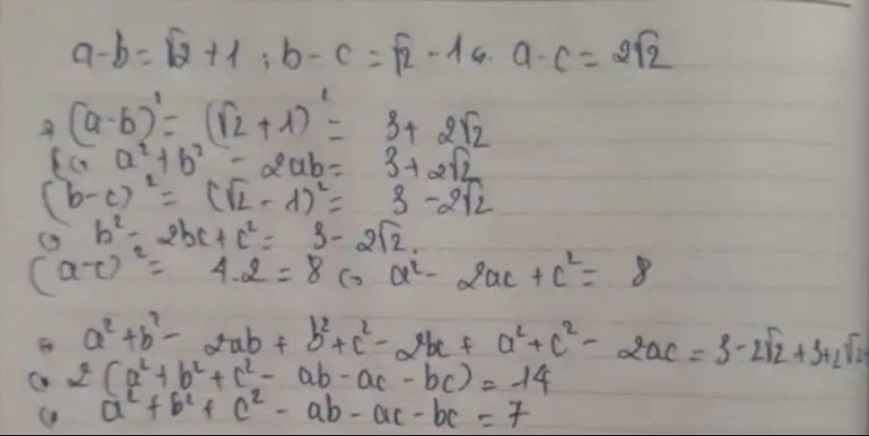 a-b = √2 + 1 ; b - c = √2 - 1 a - c = 2√2
(a-b)² = (√2 + 1)² = 3 + 2√2
⇔ a² + b² - 2ab = 3 + 2√2
(b-c)² = (√2 - 1)² = 3 - 2√2
⇔ b² - 2bc + c² = 3 - 2√2.
(a-c)² = 4.2 = 8 ⇔ a² - 2ac + c² = 8
⇒ a² + b² - 2ab + b² + c² - 2bc + a² + c² - 2ac = 3 - 2√2 + 3 + 2√2
⇔ 2 (a² + b² + c² - ab - ac - bc) = 14
⇔ a² + b² + c² - ab - ac - bc = 7